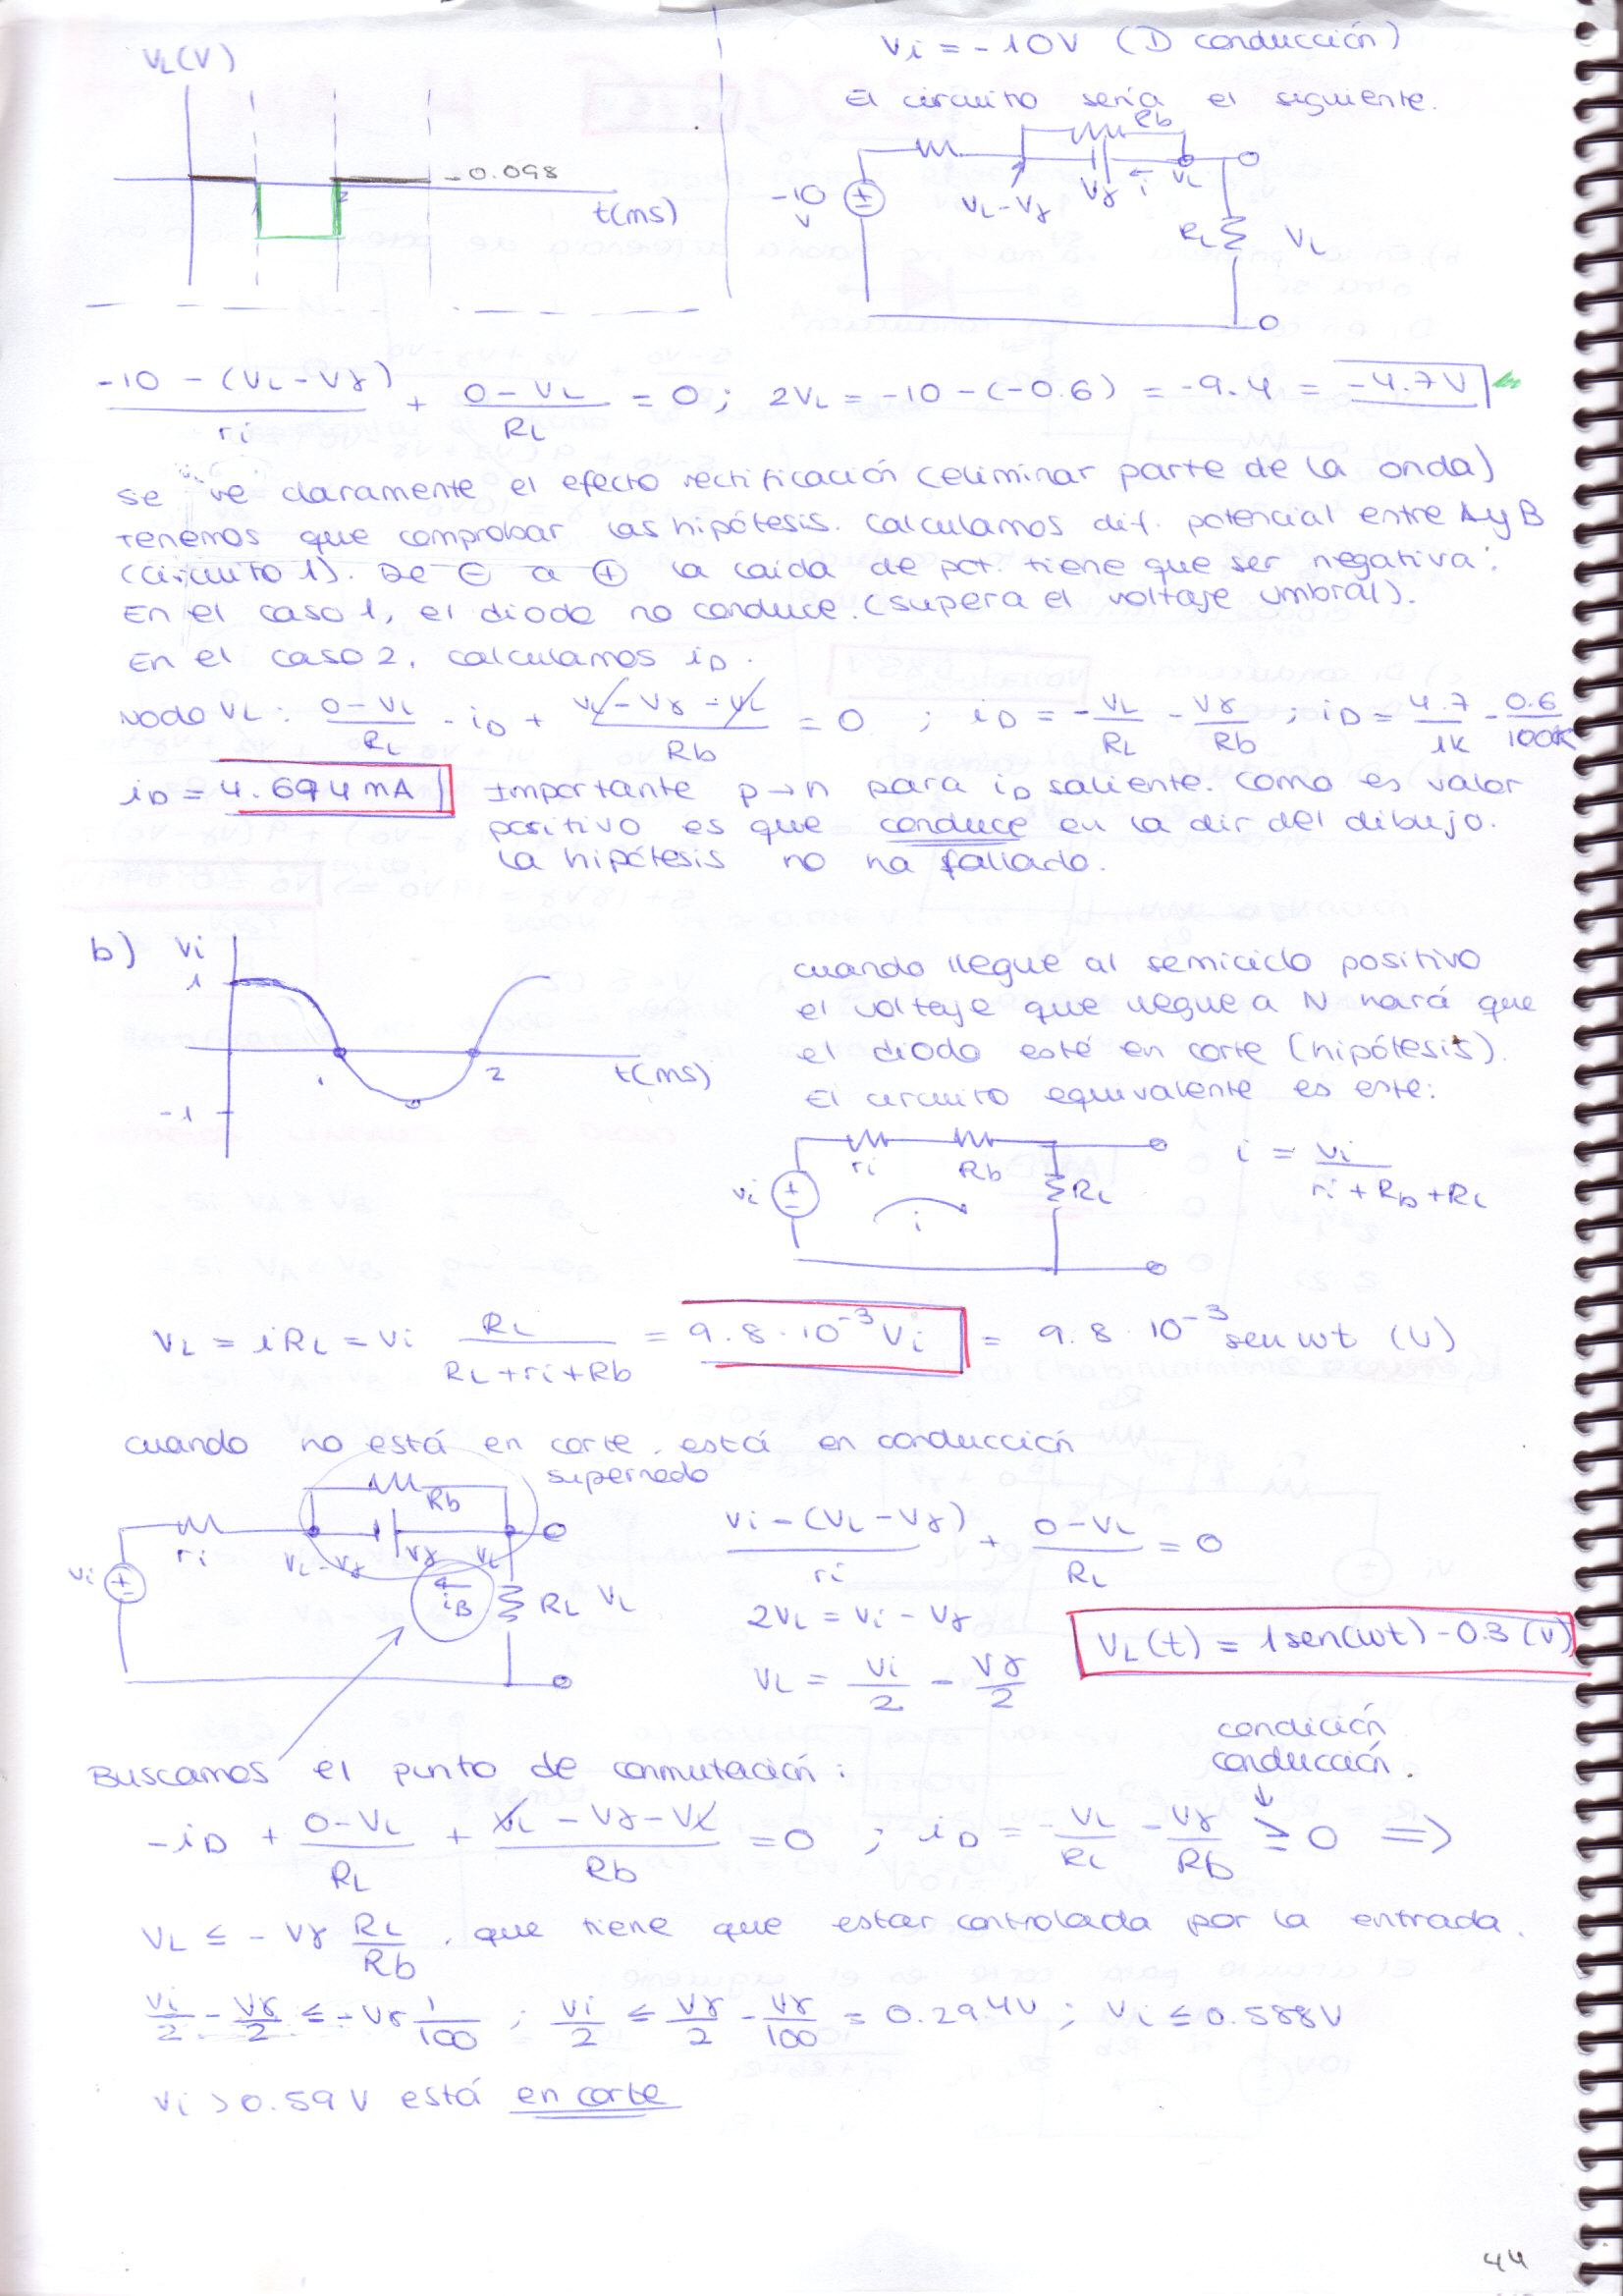 VL(V)
-0.098
1
2
t(ms)
Vi = -10V (D conducción)
El circuito sería el siguiente.
Rb
-10
V
VL-Vγ
Vγ
i
VL
RL
VL
-10 - (VL-Vγ) / ri + 0-VL / RL = 0; 2VL = -10-(-0.6) = -9.4 = -4.7V
se ve claramente el efecto rectificación (eliminar parte de la onda)
Tenemos que comprobar las hipótesis. Calculamos dif. potencial entre A y B
(circuito 1). De ⊖ a ⊕ la caída de pot. tiene que ser negativa.
En el caso 1, el diodo no conduce. (supera el voltaje umbral).
En el caso 2, calculamos iD.
Nodo VL: 0-VL / RL - iD + VL-Vγ-VL / Rb = 0 ; iD = -VL/RL - Vγ/Rb ; iD = 4.7/1K - 0.6/100K
iD = 4.694mA Importante p→n para iD saliente. Como es valor
positivo es que conduce en la dir del dibujo.
La hipótesis no ha fallado.
b) Vi
1
-1
1
2
t(ms)
cuando llegue al semiciclo positivo
el voltaje que llegue a N hará que
el diodo esté en corte (hipótesis).
El circuito equivalente es este:
ri
Rb
vi
RL
i
i = vi / ri+Rb+RL
VL = iRL = vi RL / RL+ri+Rb = 9.8·10⁻³ Vi = 9.8·10⁻³ sen wt (V)
cuando no está en corte, está en conducción
supernodo
Rb
ri
VL-Vγ
Vγ
VL
vi
iB
RL
VL
vi-(VL-Vγ) / ri + 0-VL / RL = 0
2VL = vi - Vγ
VL = vi/2 - Vγ/2
VL(t) = 1sen(wt)-0.3(V)
condición
conducción.
Buscamos el punto de conmutación:
-iD + 0-VL / RL + VL-Vγ-VL / Rb = 0 ; iD = -VL/RL - Vγ/Rb ≥ 0 ⇒
VL ≤ -Vγ RL/Rb, que tiene que estar controlada por la entrada.
vi/2 - Vγ/2 ≤ -Vγ 1/100 ; vi/2 ≤ Vγ/2 - Vγ/100 = 0.294V ; Vi ≤ 0.588V
Vi > 0.59V está en corte
44